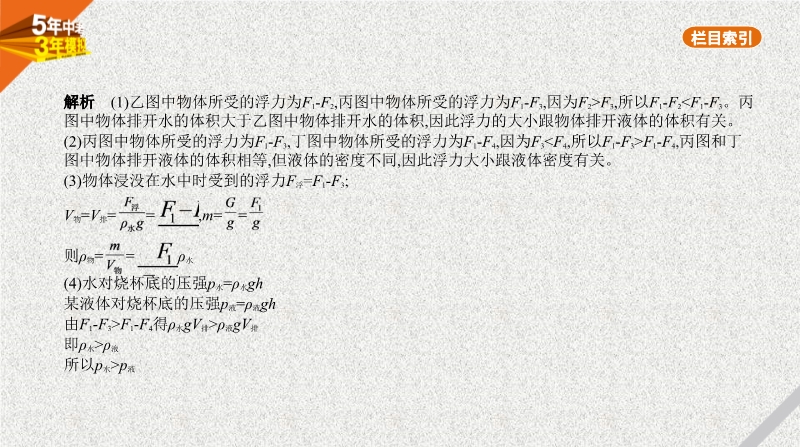 5年中考
3年模拟
栏目索引
解析 (1)乙图中物体所受的浮力为F₁-F₂,丙图中物体所受的浮力为F₁-F₃,因为F₂>F₃,所以F₁-F₂<F₁-F₃。丙
图中物体排开水的体积大于乙图中物体排开水的体积,因此浮力的大小跟物体排开液体的体积有关。
(2)丙图中物体所受的浮力为F₁-F₃,丁图中物体所受的浮力为F₁-F₄,因为F₃<F₄,所以F₁-F₃>F₁-F₄,丙图和丁
图中物体排开液体的体积相等,但液体的密度不同,因此浮力大小跟液体密度有关。
(3)物体浸没在水中时受到的浮力F浮=F₁-F₃;
V物=V排=F浮/ρ水g=F₁-,m=G/g=F₁/g
则ρ物=m/V物=F₁ρ水
(4)水对烧杯底的压强p水=ρ水gh
某液体对烧杯底的压强p液=ρ液gh
由F₁-F₃>F₁-F₄得ρ水gV排>ρ液gV排
即ρ水>ρ液
所以p水>p液